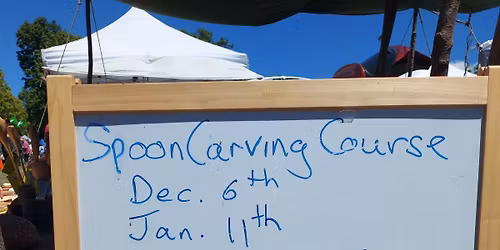 Spoon Carving Course
Dec. 6th
Jan. 11th